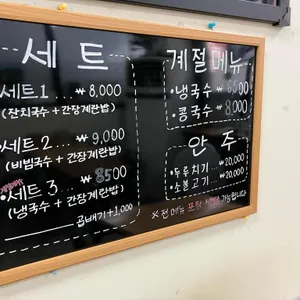 세트
세트1... ₩8,000
(잔치국수 + 간장계란밥)
세트2... ₩9,000
(비빔국수 + 간장계란밥)
세트3... ₩8500
(냉국수 + 간장계란밥)
곱배기 +1,000
계절메뉴
냉국수 ₩6500
콩국수 ₩8,000
안주
두루치기.. ₩20,000
소불고기.. ₩20,000
※전메뉴 포장 가능합니다